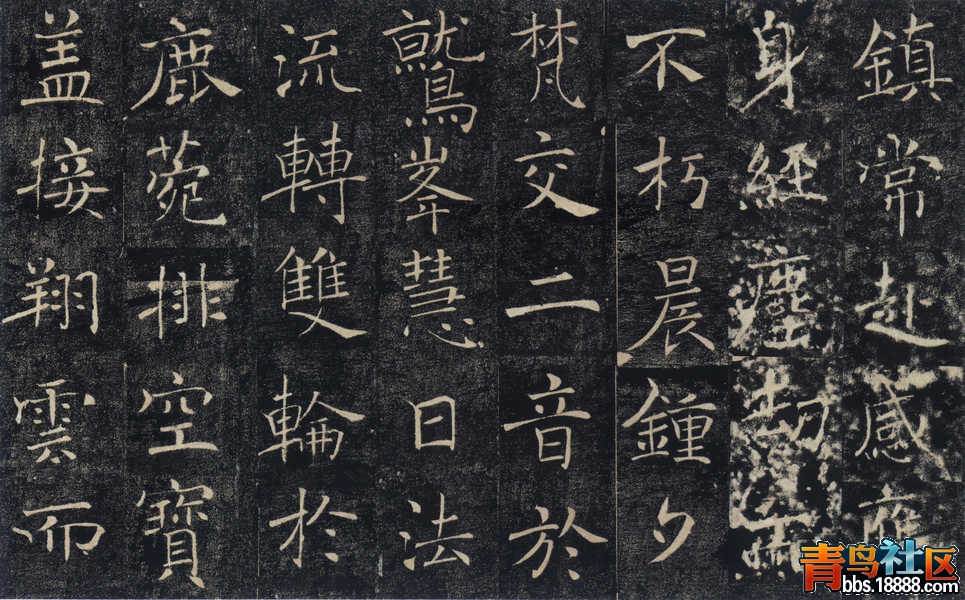 鎮常赴感應
身經塵劫而
不朽晨鍾夕
梵交二音於
鷲峯慧日法
流轉雙輪於
鹿菀排空寶
盖接翔雲而
青鸟社区
bbs.18888.com